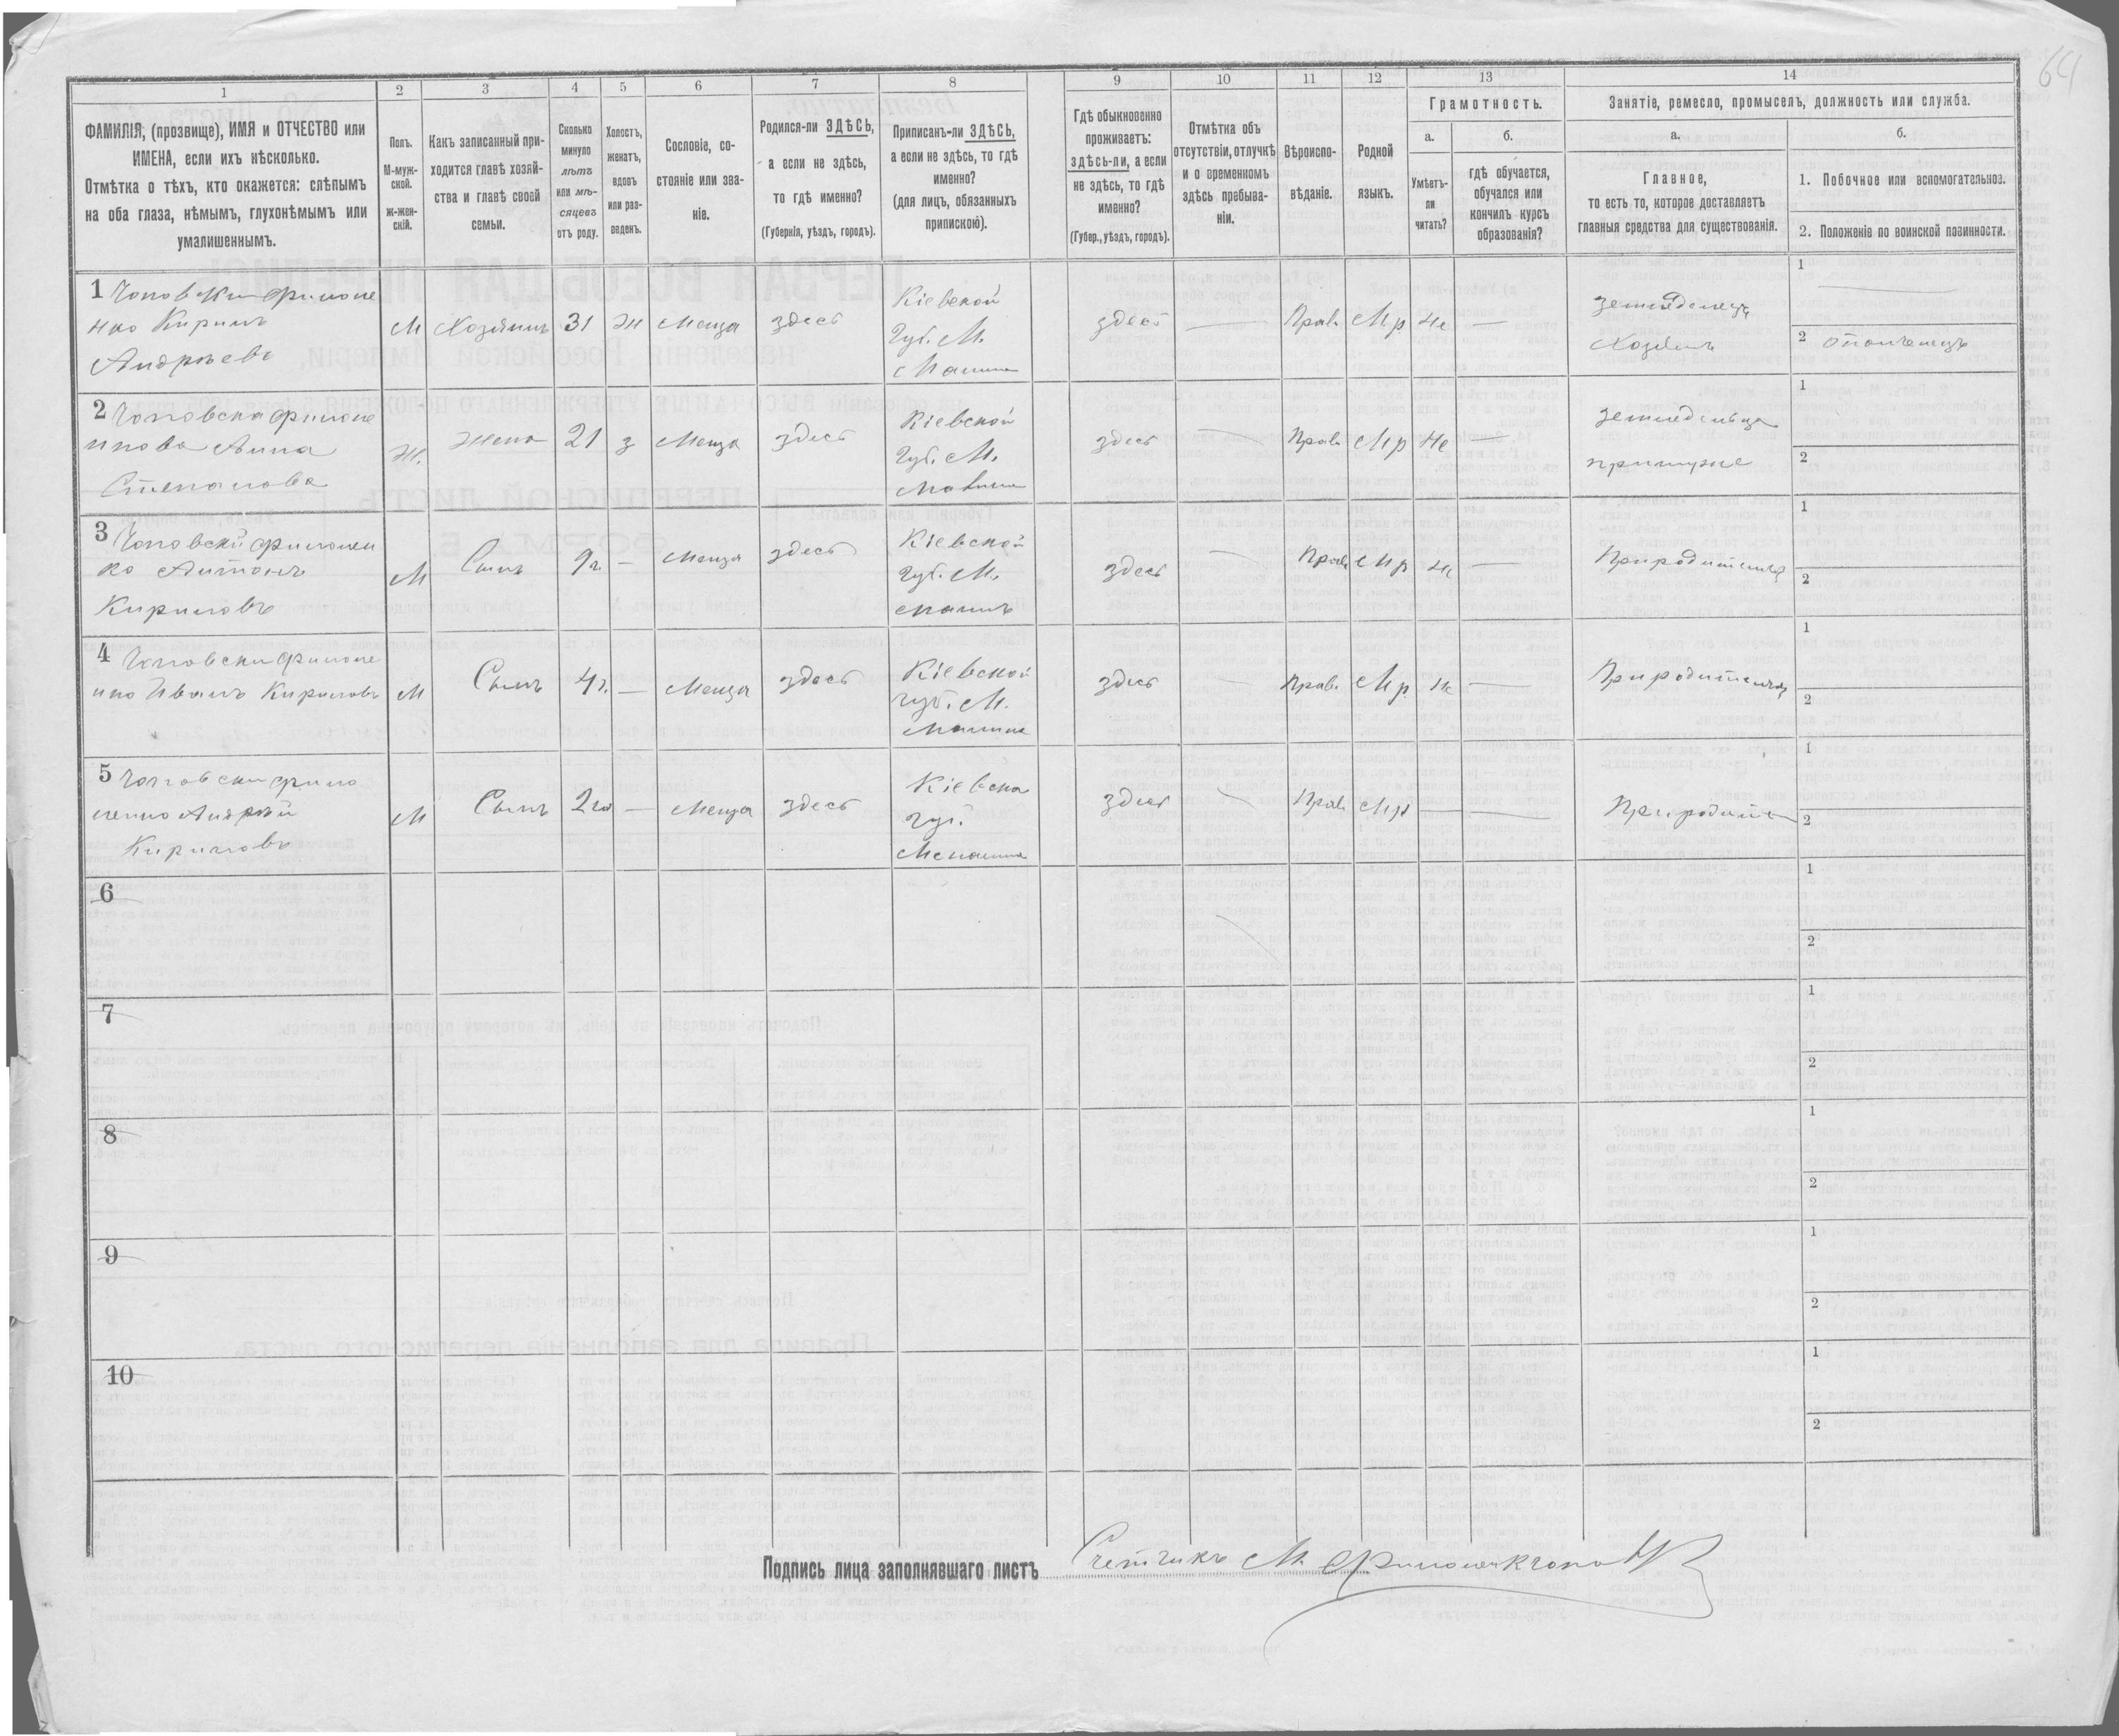 64
1
2
3
4
5
6
7
8
9
10
11
12
13
14
ФАМИЛІЯ, (прозвище), ИМЯ и ОТЧЕСТВО или
ИМЕНА, если ихъ нѣсколько.
Отмѣтка о тѣхъ, кто окажется: слѣпымъ
на оба глаза, нѣмымъ, глухонѣмымъ или
умалишеннымъ.
Полъ.
М-муж-
ской.
Ж-жен-
скій.
Какъ записанный при-
ходится главѣ хозяй-
ства и главѣ своей
семьи.
Сколько
минуло
лѣтъ
или мѣ-
сяцевъ
отъ роду.
Холостъ,
женатъ,
вдовъ
или раз-
веденъ.
Сословіе, со-
стояніе или зва-
ніе.
Родился-ли ЗДѢСЬ,
а если не здѣсь,
то гдѣ именно?
(Губернія, уѣздъ, городъ).
Приписанъ-ли ЗДѢСЬ,
а если не здѣсь, то гдѣ
именно?
(для лицъ, обязанныхъ
припискою).
Гдѣ обыкновенно
проживаетъ:
здѣсь-ли, а если
не здѣсь, то гдѣ
именно?
(Губер., уѣздъ, городъ).
Отмѣтка объ
отсутствіи, отлучкѣ
и о временномъ
здѣсь пребыва-
ніи.
Вѣроиспо-
вѣданіе.
Родной
языкъ.
Грамотность.
а.
Умѣетъ-
ли
читать?
б.
гдѣ обучается,
обучался или
кончилъ курсъ
образованія?
Занятіе, ремесло, промыселъ, должность или служба.
а.
Главное,
то есть то, которое доставляетъ
главныя средства для существованія.
б.
1. Побочное или вспомогательное.
2. Положеніе по воинской повинности.
1 Чоповски Филоне
нко Кирилъ
Андрѣевъ
М Хозяинъ 31 Ж Меща здесь
Кіевской
Губ. М.
Малина
здесь — Прав. Мр Не —
земледелецъ
Хозяинъ
1
2 ополченецъ
2 Чоповска Филоне
нкова Анна
Степанова
Ж. Жена 21 З Меща здесь
Кіевской
Губ. М.
Малина
здесь — Прав Мр Не —
земледельца
примуже
1
2
3 Чоповскй Филонен
ко Антонъ
Кириловъ
М Сынъ 9г. — Меща здесь
Кіевской
Губ. М.
Малинъ
здесь — Прав Мр Не —
Природителях
1
2
4 Чоповски Филоне
нко Иванъ Кириловъ
М Сынъ 4г. — Меща здесь
Кіевской
Губ. М.
Малина
здесь — Прав. Мр. Не —
Природителях
1
2
5 Чоповски Фило
ненко Андрѣй
Кириловъ
М Сынъ 2го — Меща здесь
Кіевска
Губ.
здесь — Прав Мр — —
1
2
6
1
2
7
1
2
8
1
2
9
1
2
10
1
2
Подпись лица заполнявшаго листъ Счетчикъ М.